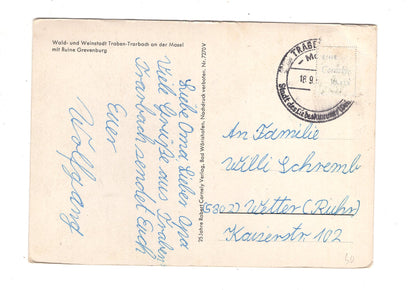 Wald- und Weinstadt Traben-Trarbach an der Mosel
mit Ruine Grevenburg
Liebe Oma Lieber Opa
Viele Grüße aus Traben
Trarbach sendet Euch
Euer
Wolfgang
25 Jahre Robert Cornely Verlag, Bad Wörishofen, Nachdruck verboten, Nr. 7270V
TRABE
18.9.
Stadt des
An Familie
Willi Schremb
(5802) Wetter (Ruhr)
Kaiserstr 102
50